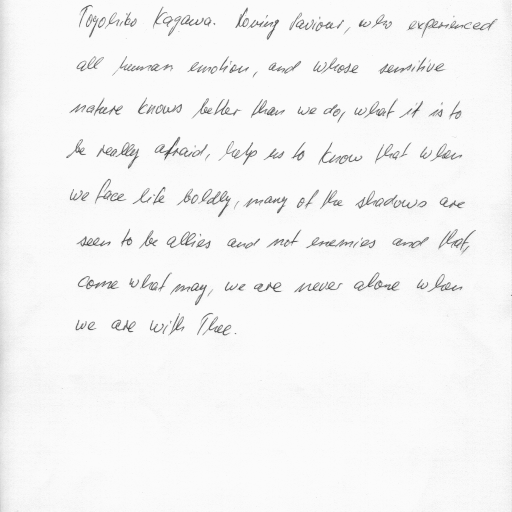 Toyohiko Kagawa. Loving Saviour, who experienced
all human emotion, and whose sensitive
nature knows better than we do, what it is to
be really afraid, help us to know that when
we face life boldly, many of the shadows are
seen to be allies and not enemies and that,
come what may, we are never alone when
we are with Thee.